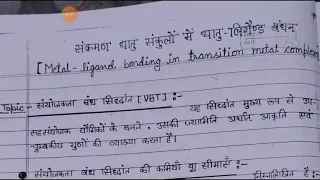 संक्रमण धातु संकुलों में धातु-लिगैण्ड बंधन
[Metal-ligand bonding in transition metal complex
Topic - संयोजकता बंध सिद्धांत [VBT] :-
यह सिद्धांत मुख्य रूप से उप-
सहसंयोजक यौगिकों के बनने, उसकी ज्यामिति अर्थात आकृति एवं
चुम्बकीय गुणों की व्याख्या करता है।
संयोजकता बंध सिद्धांत की कमियाँ या सीमाएँ :-